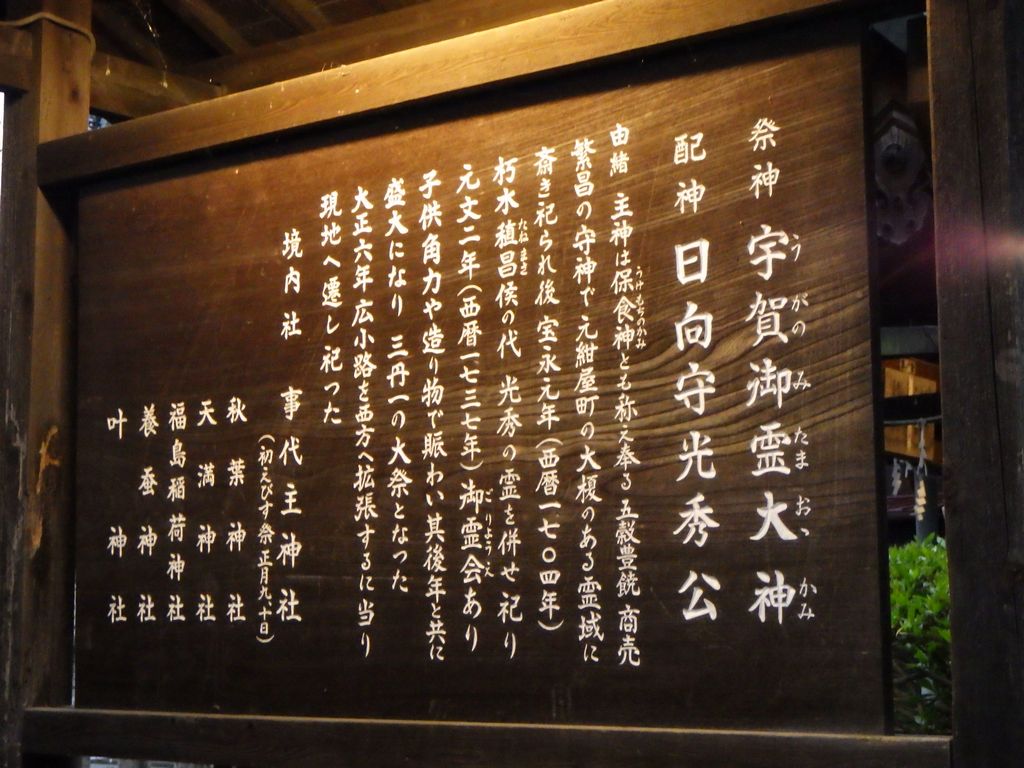 祭神 宇賀御霊大神
うがのみたまおゝかみ
配神 日向守光秀公
由緒 主神は保食神とも称え奉る 五穀豊饒 商売
うけもちのかみ
繁昌の守神で元紺屋町の大榎のある霊域に
斎き祀られ後 宝永元年(西暦一七〇四年)
朽木稙昌侯の代 光秀の霊を併せ祀り
たねまさ
元文二年(西暦一七三七年)御霊会あり
ごりょうえ
子供角力や造り物で賑わい其後年と共に
盛大になり 三丹一の大祭となった
大正六年広小路を西方へ拡張するに当り
現地へ遷し祀った
境内社 事代主神社
(初えびす祭正月九十日)
秋葉神社
天満神社
福島稲荷神社
養蚕神社
叶神社